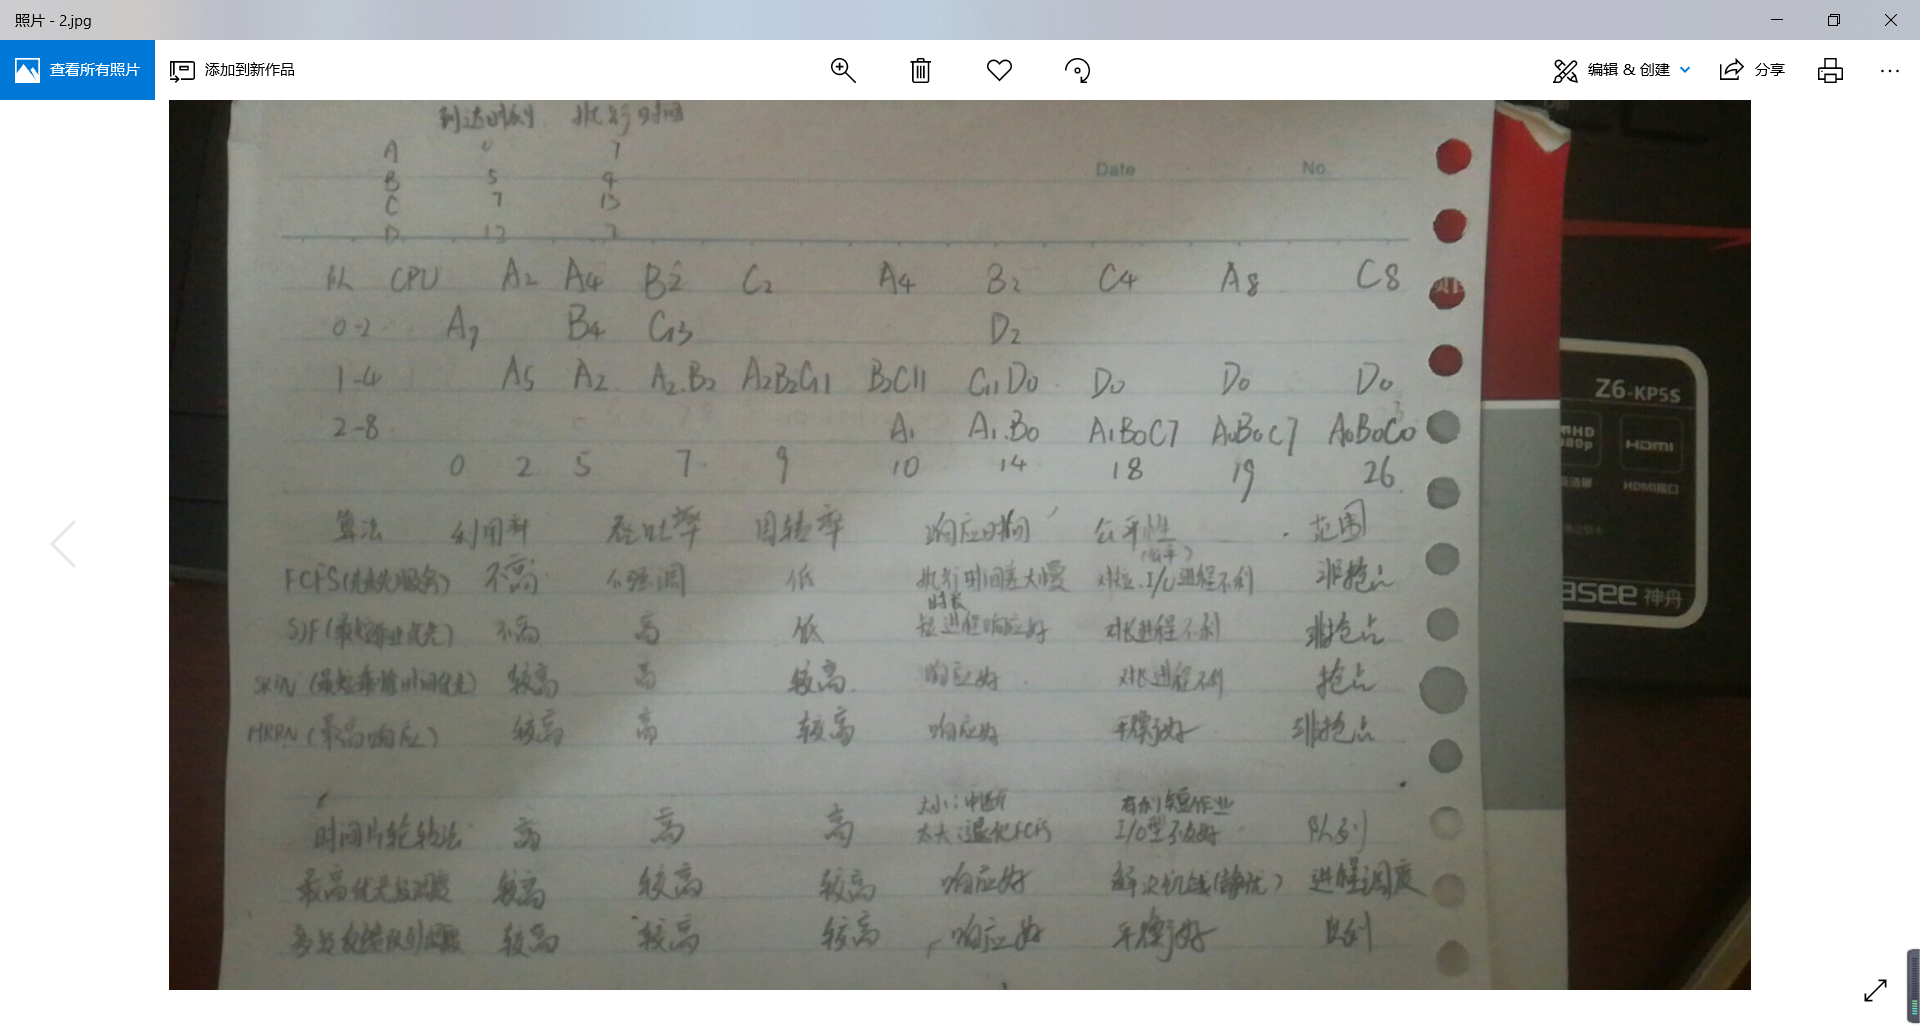 照片 - 2.jpg
查看所有照片 添加到新作品 编辑 & 创建 分享
到达时刻 执行时间
A 0 7
B 5 4
C 7 13
D 12 2
Date No.
队 CPU A2 A4 B2 C2 A4 B2 C4 A8 C8
0-2 A7 B4 C13 D2
1-4 A5 A2 A2.B2 A2B2C11 B2C11 C11D0 D0 D0 D0
2-8 A1 A1.B0 A1B0C7 A0B0C7 A0B0C0
0 2 5 7 9 10 14 18 19 26
算法 利用率 吞吐率 周转率 响应时间 公平性 范围
FCFS(先来先服务) 不高 不强调 低 执行时间差大慢 对短、I/O进程不利 非抢占
SJF(最短作业优先) 不高 高 低 短进程响应好 对长进程不利 非抢占
SRTN(最短剩余时间优先) 较高 高 较高 响应好 对长进程不利 抢占
HRRN(最高响应) 较高 高 较高 响应好 平衡好 非抢占
太小:中断 有利短作业
时间片轮转法 高 高 高 太大:退化FCFS I/O型不友好 队列
最高优先级调度 较高 较高 较高 响应好 解决饥饿(静优) 进程调度
多级反馈队列 较高 较高 较高 响应好 平衡好 队列
Z6-KP5S
HDMI
HDMI接口
asee 神舟